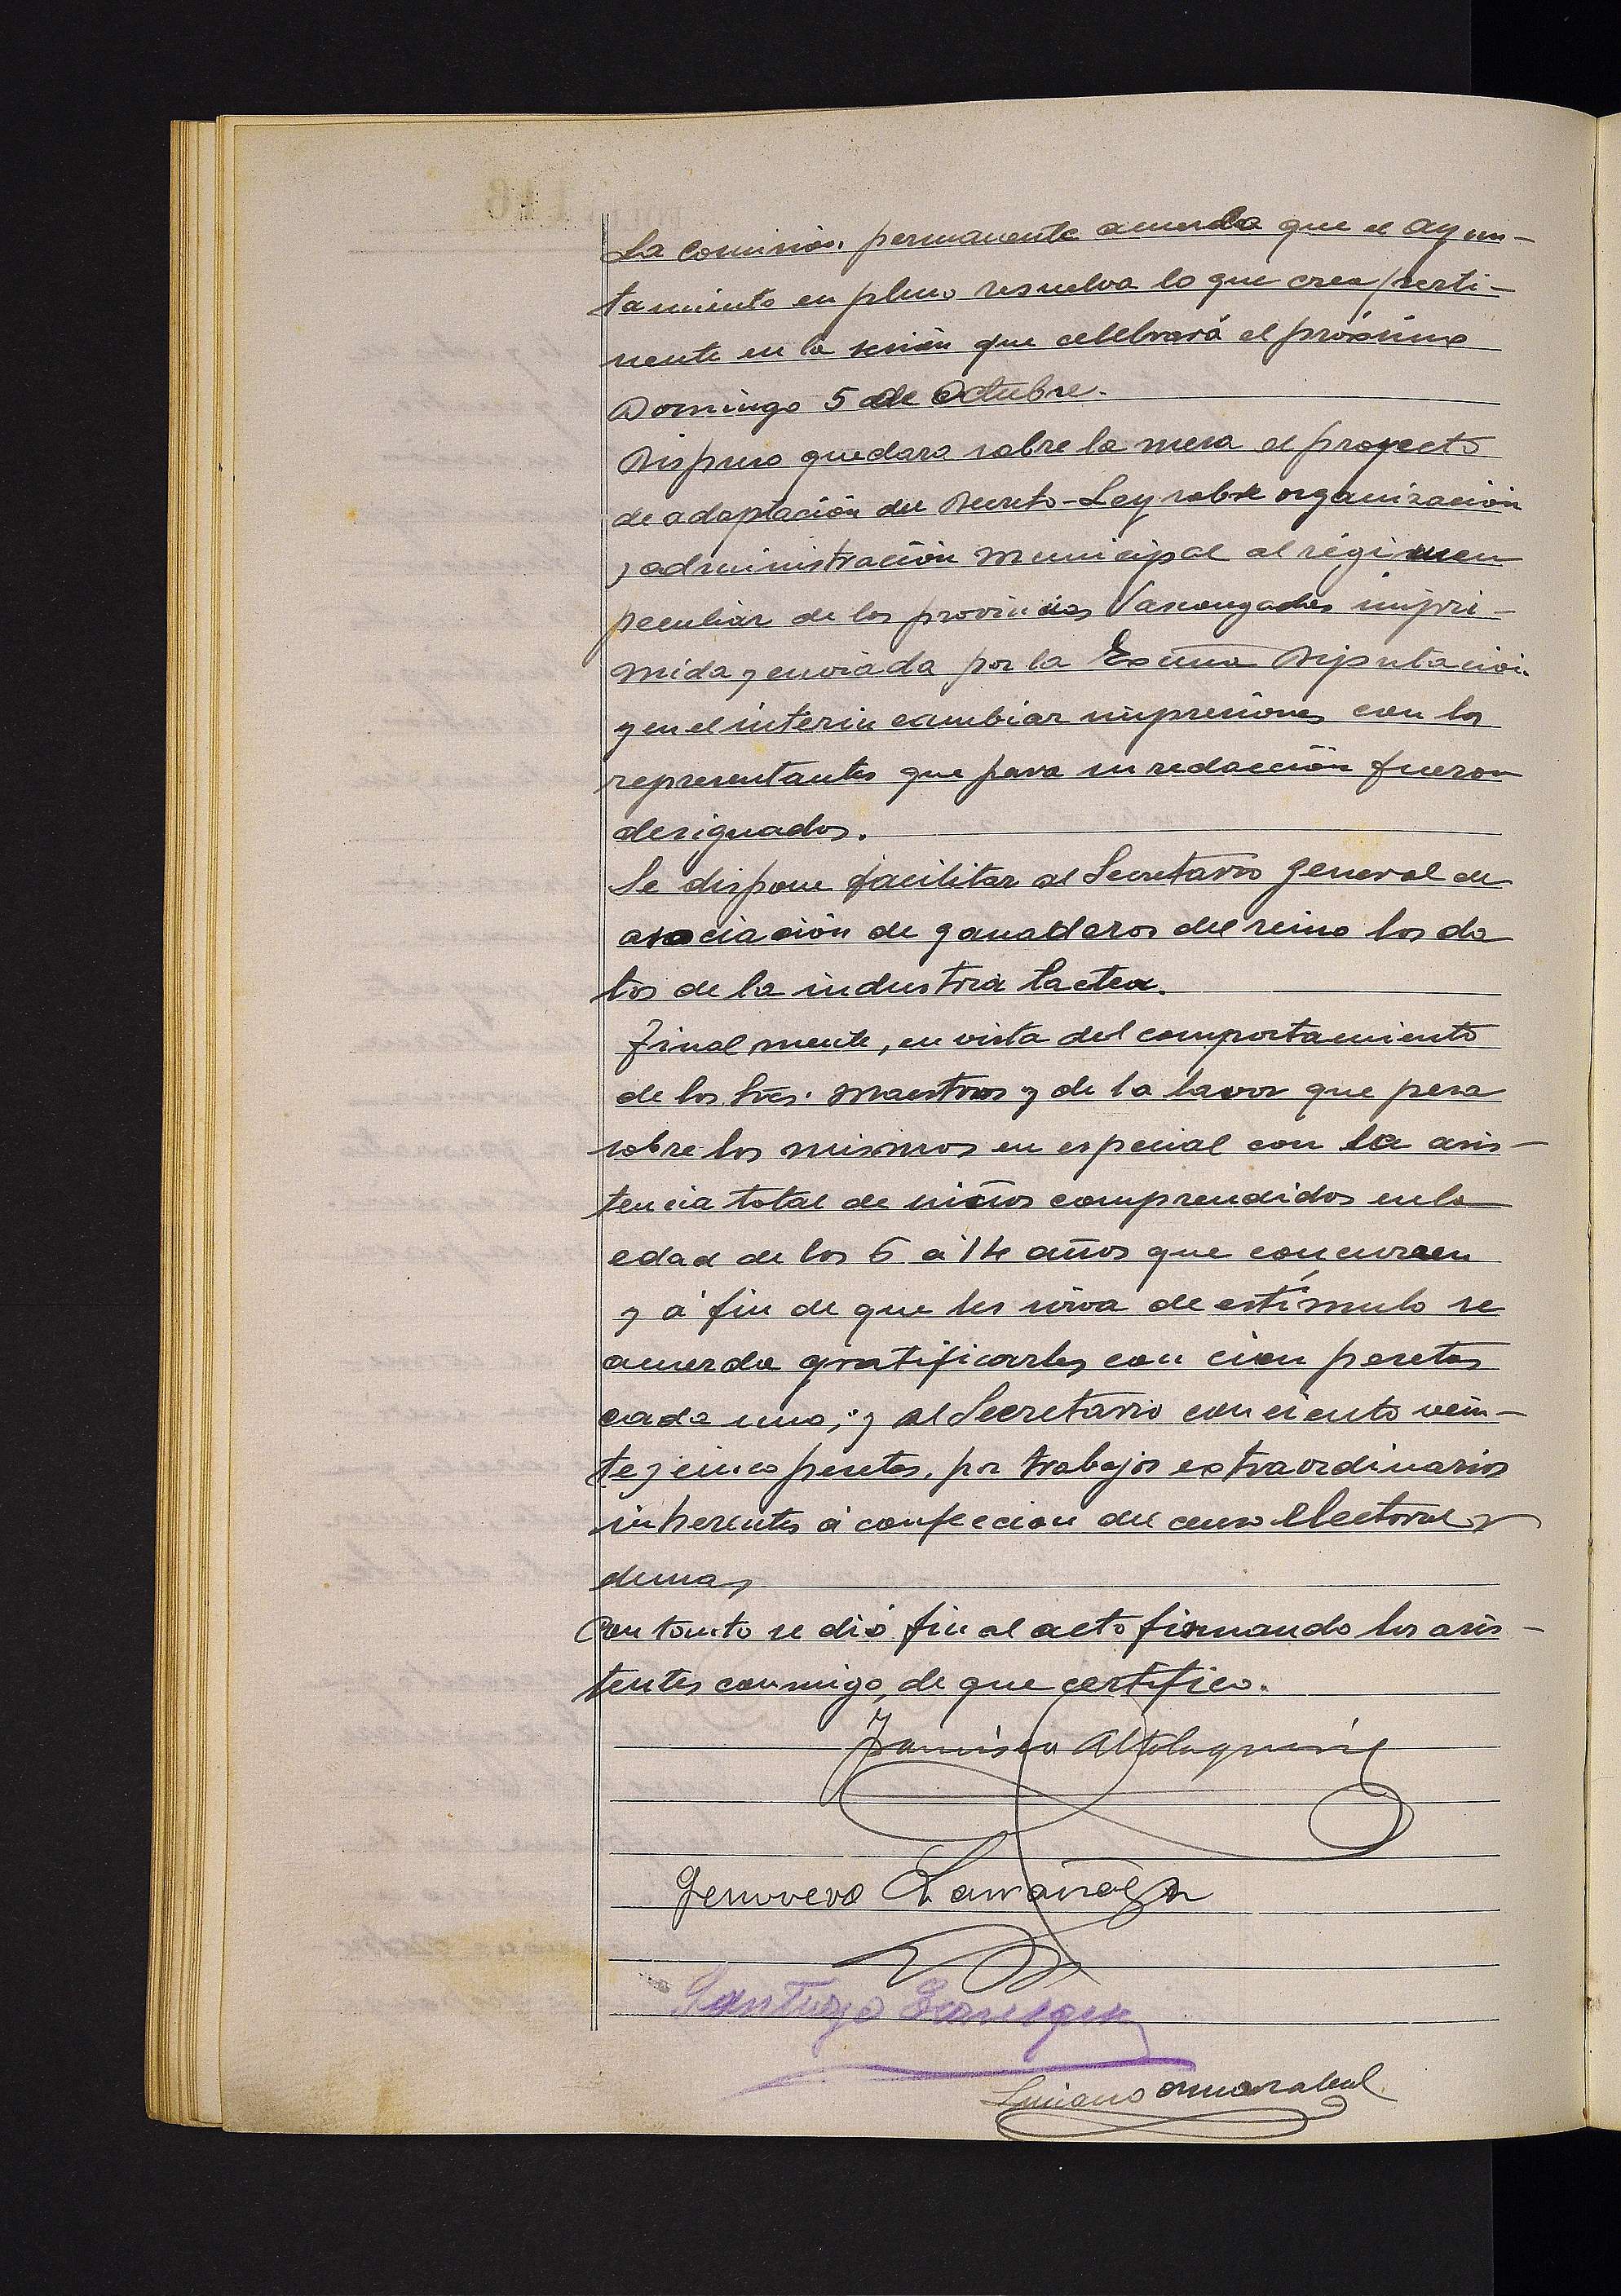 La comision permanente acuerda que el ayun-
tamiento en pleno resuelva lo que crea perti-
nente en la sesión que celebrará el próximo
Domingo 5 de Octubre.
Dispuso quedara sobre la mesa el proyecto
de adaptación del Decreto-Ley sobre organización
y administración municipal al régimen
peculiar de las provincias Vascongadas impri-
mida y enviada por la Excma Diputacion
y en el interin cambiar impresiones con los
representantes que para su redacción fueron
designados.
Se dispone facilitar al Secretario general de
asociación de ganaderos del reino los da
tos de la industria lactea.
Finalmente, en vista del comportamiento
de los Sres. maestros y de la lavor que pesa
sobre los mismos en especial con la asis-
tencia total de niños comprendidos en la
edad de los 6 á 14 años que concurren
y á fin de que les sirva de estímulo se
acuerda gratificarles con cien pesetas
cada uno; y al Secretario con ciento vein-
te y cinco pesetas, por trabajos extraordinarios
inherentes á confeccion del censo electoral y
demas
Con tanto se dió fin al acto firmando los asis-
tentes conmigo, de que certifico.
Francisco Altolaguirre
Genoveva Larrañaga
Santiago
Luciano